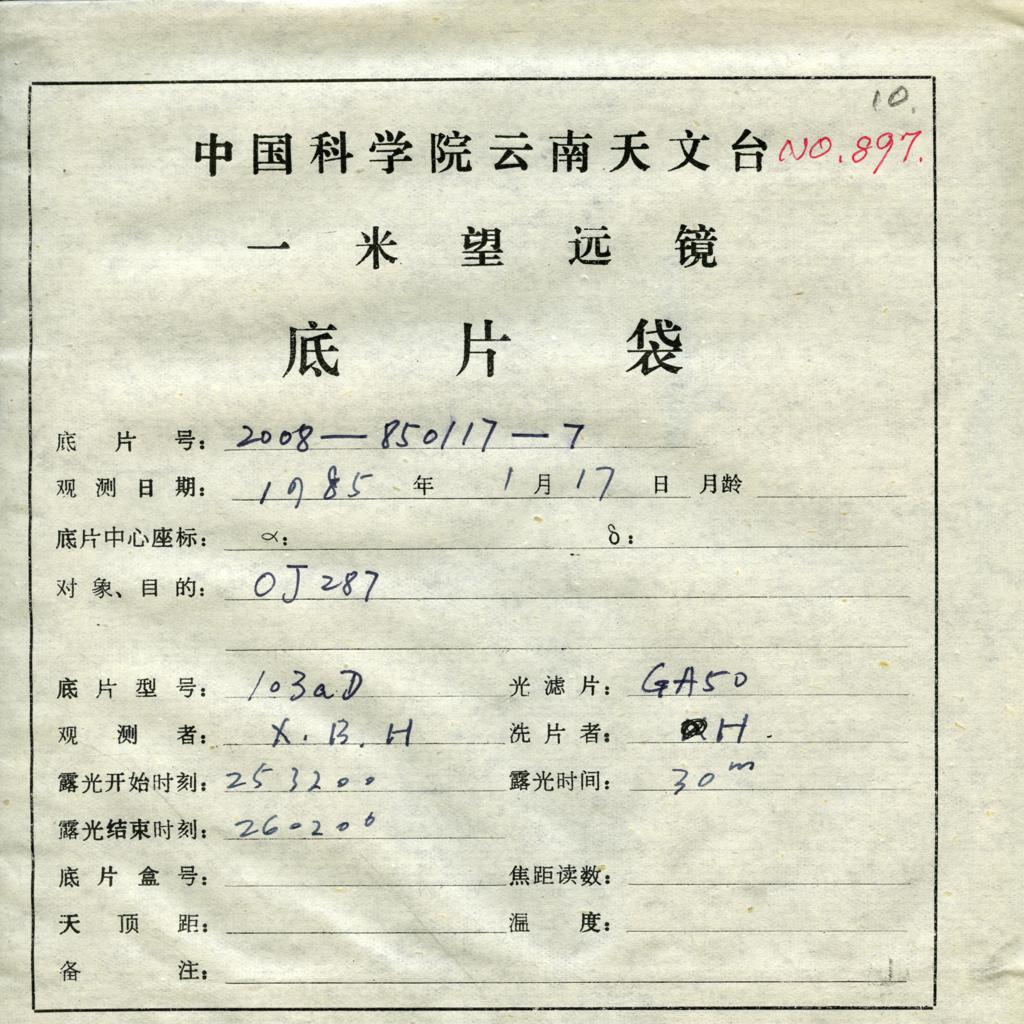 10.
中国科学院云南天文台 NO.897.
一米望远镜
底片袋
底片号: 2008—850117—7
观测日期: 1985 年 1 月 17 日 月龄
底片中心座标: α: δ:
对象、目的: OJ 287
底片型号: 103aD 光滤片: GA50
观测者: X.B.H 洗片者: H.
露光开始时刻: 253200 露光时间: 30m
露光结束时刻: 260200
底片盒号: 焦距读数:
天顶距: 温度:
备注: